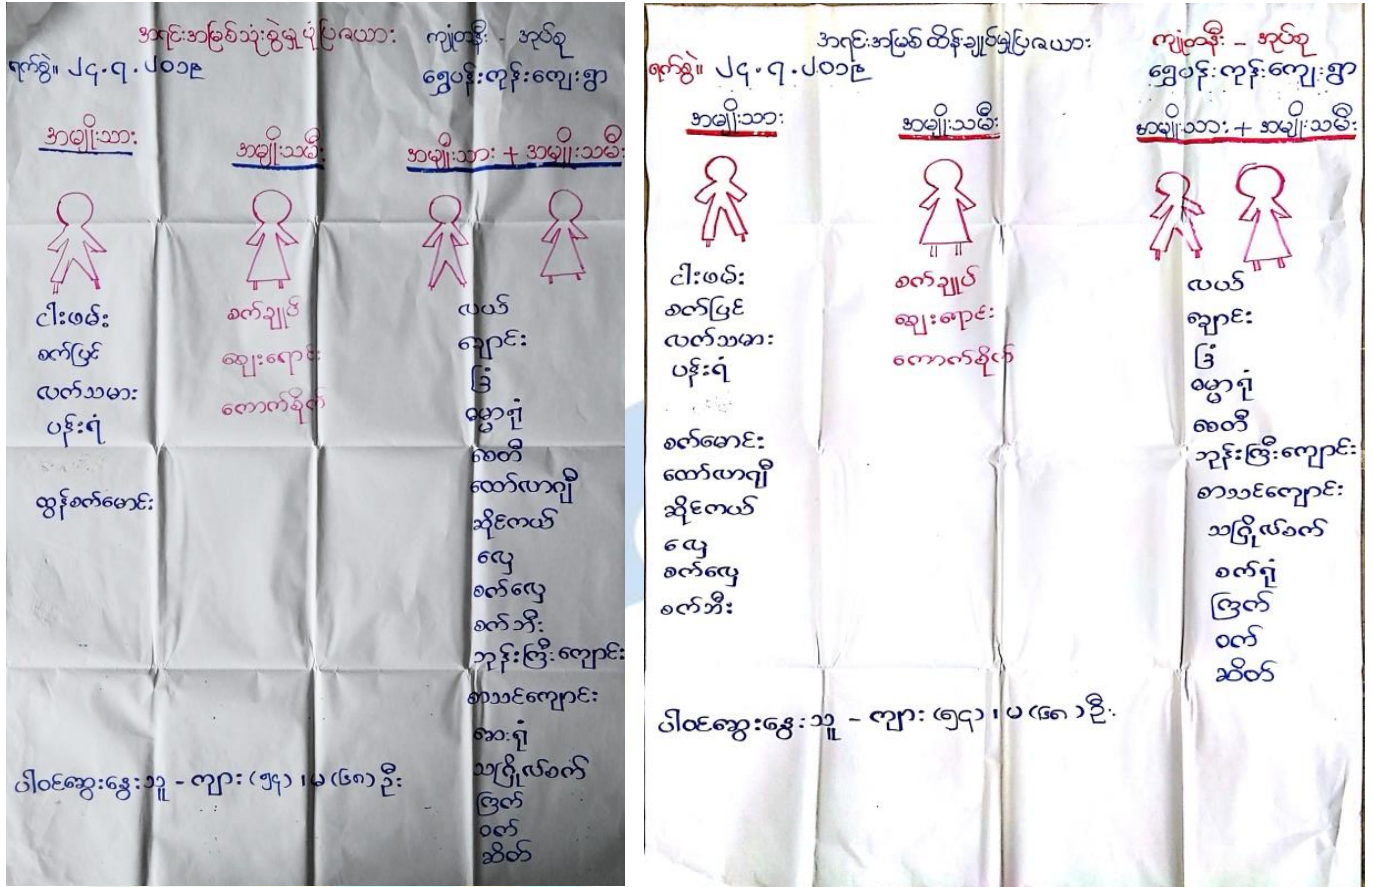 အရင်းအမြစ်သုံးစွဲမှုပုံပြဇယား
ကျုံတနီး - အုပ်စု
ရက်စွဲ။ ၂၄.၇.၂၀၁၉
ရွှေပန်းကုန်းကျေးရွာ
အမျိုးသား
အမျိုးသမီး
အမျိုးသား + အမျိုးသမီး
ငါးဖမ်း
စက်ပြင်
လက်သမား
ပန်းရံ
ထွန်စက်မောင်း
စက်ချုပ်
ဈေးရောင်း
ကောက်စိုက်
လယ်
ချောင်း
ခြံ
ဓမ္မာရုံ
စေတီ
ထော်လာဂျီ
ဆိုင်ကယ်
လှေ
စက်လှေ
စက်ဘီး
ဘုန်းကြီးကျောင်း
စာသင်ကျောင်း
ဆေးရုံ
သင်္ဂြိုလ်စက်
ကြက်
ဝက်
ဆိတ်
ပါဝင်ဆွေးနွေးသူ - ကျား (၅၄) ၊ မ (၆၈) ဦး
အရင်းအမြစ်ထိန်းချုပ်မှုပြဇယား
ကျုံတနီး - အုပ်စု
ရက်စွဲ။ ၂၄.၇.၂၀၁၉
ရွှေပန်းကုန်းကျေးရွာ
အမျိုးသား
အမျိုးသမီး
အမျိုးသား + အမျိုးသမီး
ငါးဖမ်း
စက်ပြင်
လက်သမား
ပန်းရံ
စက်မောင်း
ထော်လာဂျီ
ဆိုင်ကယ်
လှေ
စက်လှေ
စက်ဘီး
စက်ချုပ်
ဈေးရောင်း
ကောက်စိုက်
လယ်
ချောင်း
ခြံ
ဓမ္မာရုံ
စေတီ
ဘုန်းကြီးကျောင်း
စာသင်ကျောင်း
သင်္ဂြိုလ်စက်
စက်ရုံ
ကြက်
ဝက်
ဆိတ်
ပါဝင်ဆွေးနွေးသူ - ကျား (၅၄) ၊ မ (၆၈) ဦး